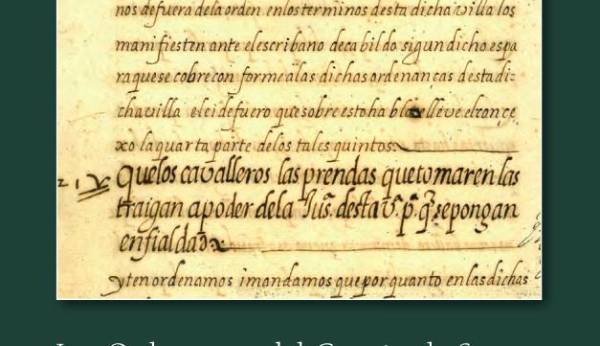 nos defuera dela orden enlos terminos desta dicha villa los
manifiesten ante elescribano decabildo sigun dicho espa
raquese cobre con forme alas dichas ordenanças desta di:
cha villa elei defuero que sobre esto habla elleve el conçe
xo la quarta parte delos tales quintos.
Quelos cavalleros las prendas que tomaren las
traigan a poder dela Jus. desta v. p. q̃ se pongan
enfialdad
yten ordenamos imandamos que por quanto en las dichas